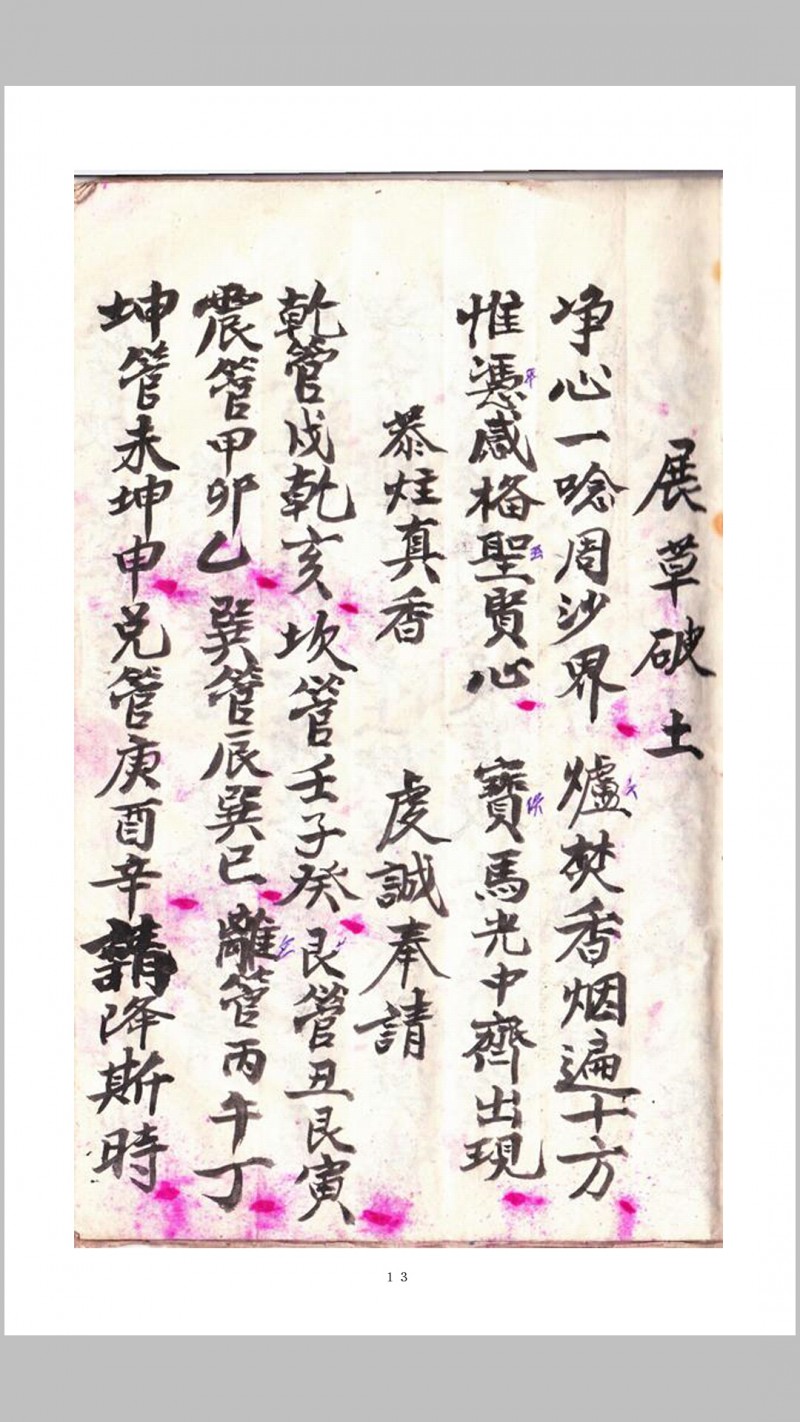 展草破土
净心一唸周沙界 爐焚香烟遍十方
惟憑感格聖賢心 寶馬光中齊出現
恭炷真香 虔誠奉請
乾管戌乾亥 坎管壬子癸 艮管丑艮寅
震管甲卯乙 巽管辰巽巳 離管丙午丁
坤管未坤申 兌管庚酉辛 請降斯時
13